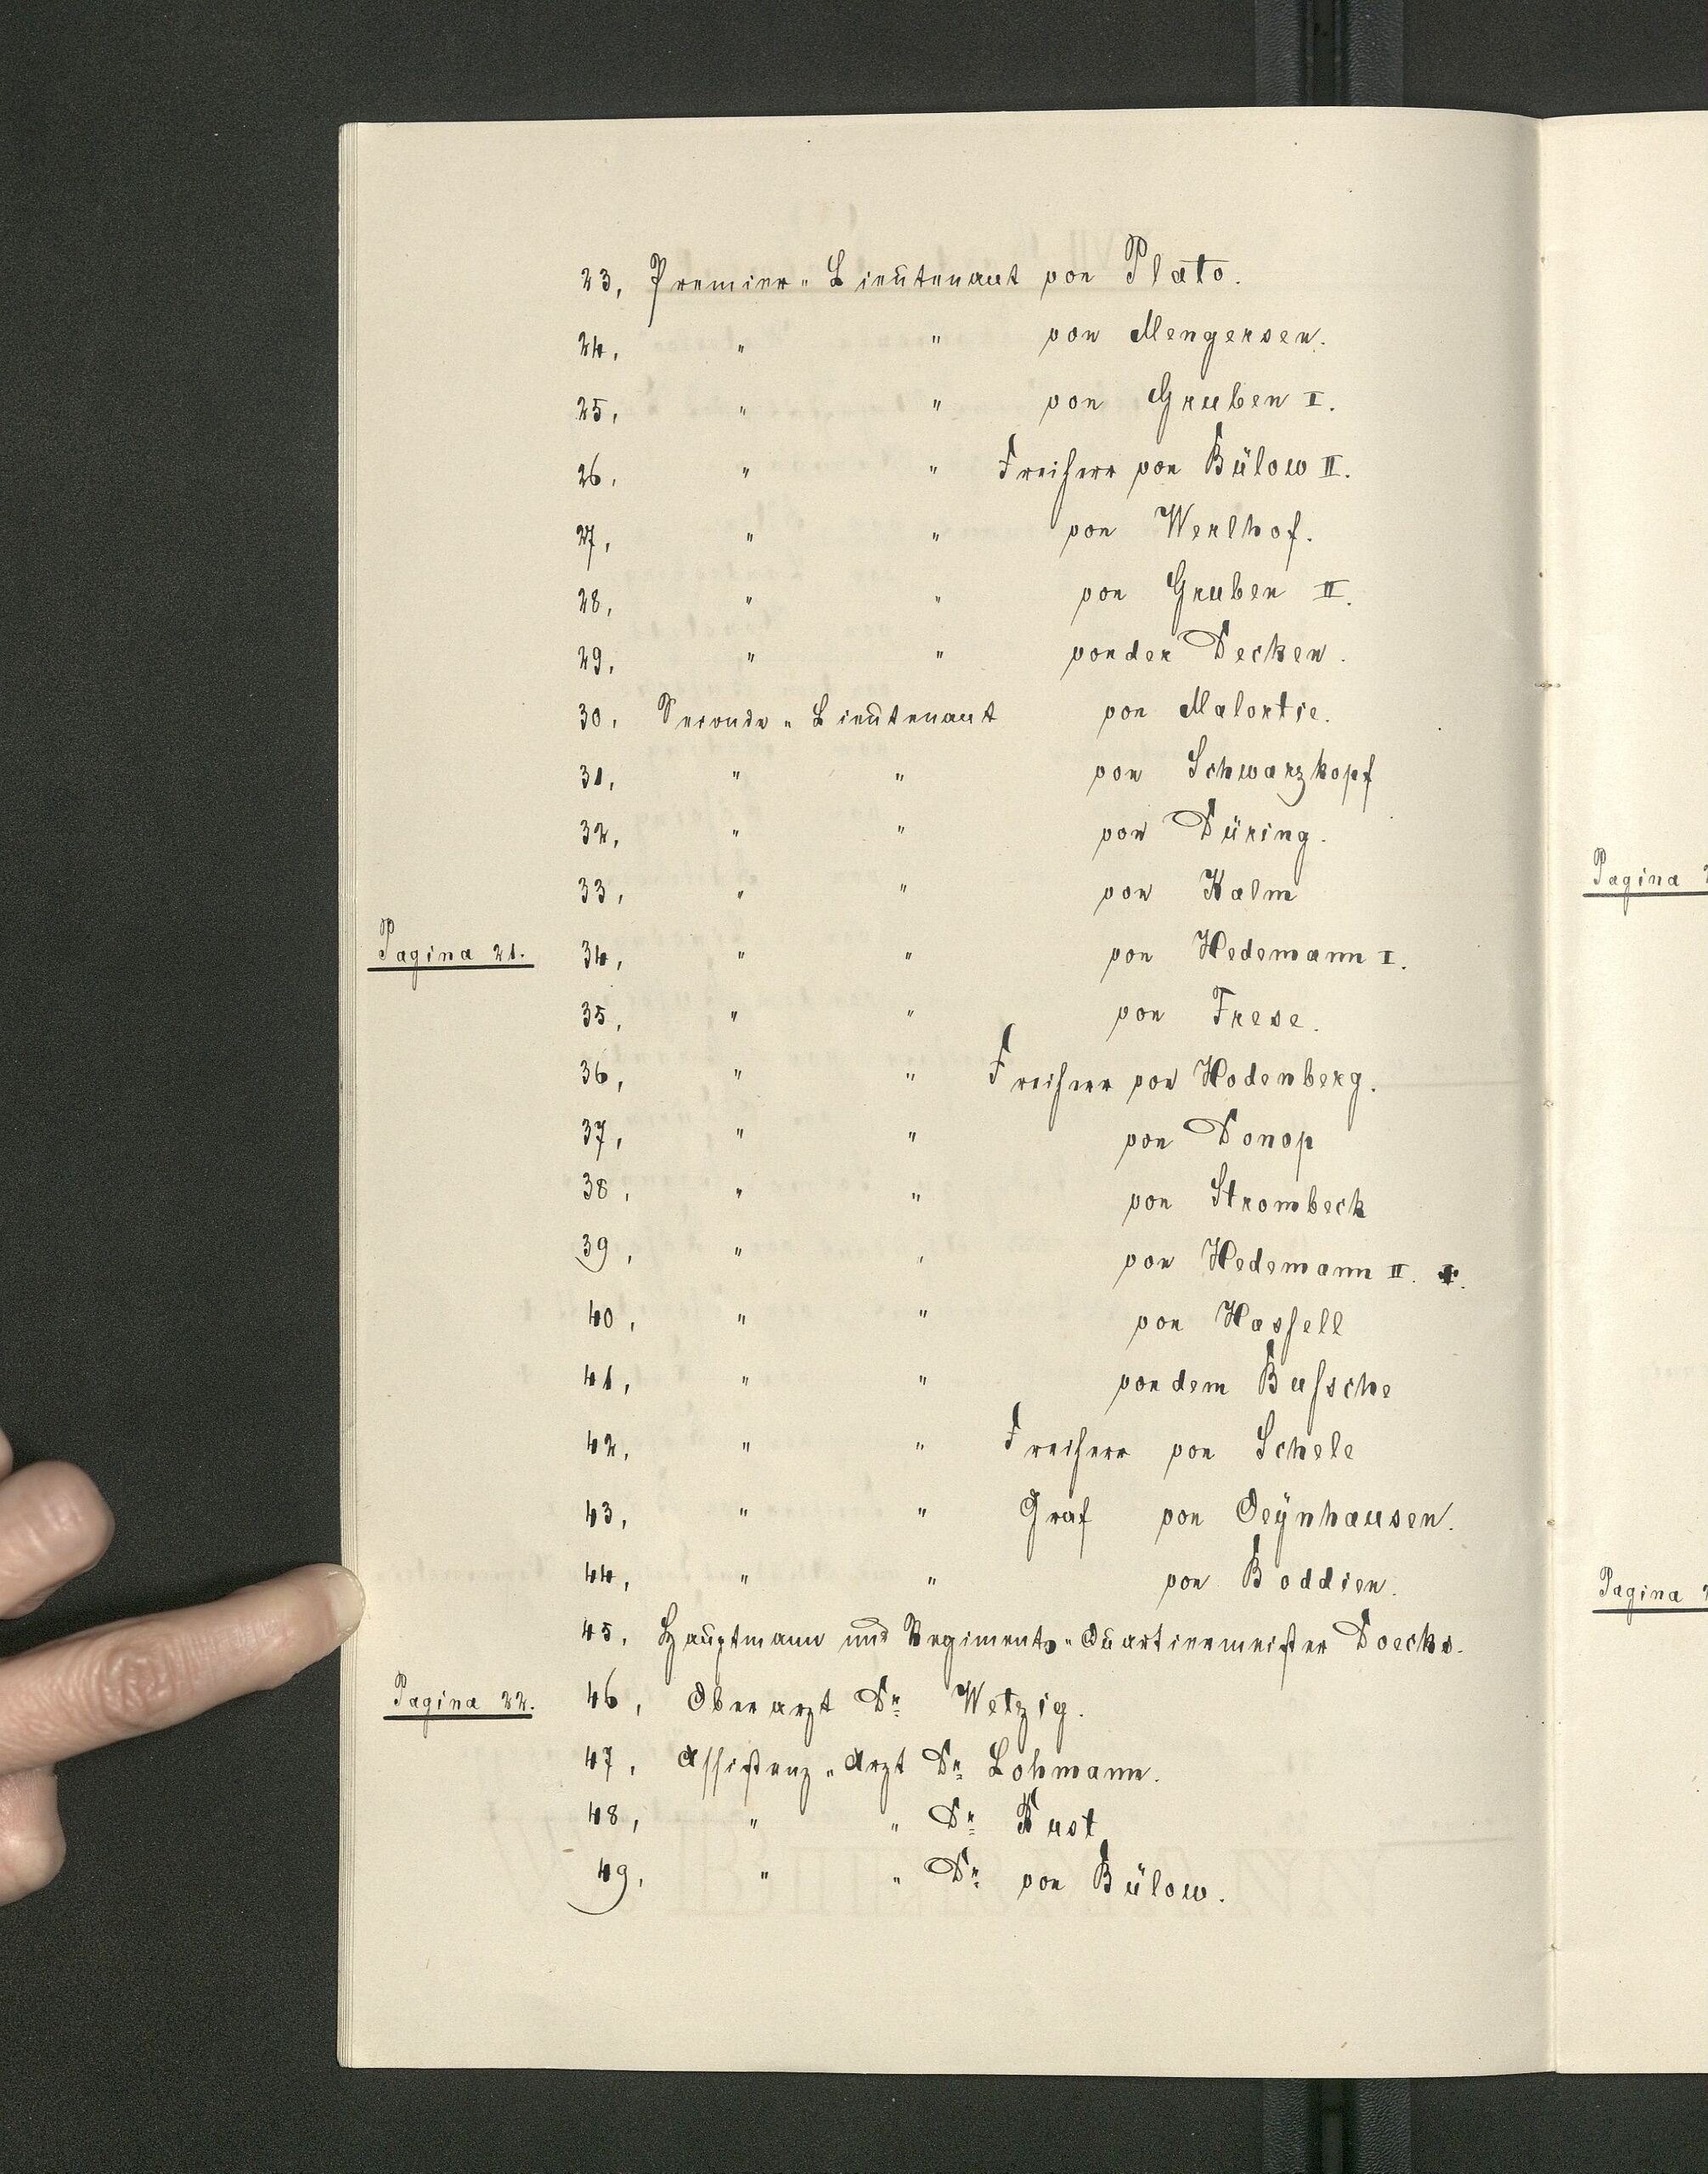 23, Premier-Lieutenant von Plato.
24, " " von Mengersen.
25, " " von Gruben I.
26, " " Freiherr von Bülow II.
27, " " von Werlhof.
28, " " von Gruben II.
29, " " von der Decken.
30, Seconde-Lieutenant von Malortie.
31, " " von Schwarzkopf
32, " " von Düring.
33, " " von Kalm
Pagina 21. 34, " " von Hedemann I.
35, " " von Frese.
36, " " Freiherr von Hodenberg.
37, " " von Donop
38, " " von Strombeck
39, " " von Hedemann II.
40, " " von Hassell
41, " " von dem Bussche
42, " " Freiherr von Schele
43, " " Graf von Oeÿnhausen.
44, " " von Boddien.
45, Hauptmann und Regiments-Quartiermeister Doecks.
Pagina 22. 46, Oberarzt Dr. Wetzig.
47, Assistenz-Arzt Dr. Lohmann.
48, " " Dr. Kust
49, " " Dr. von Bülow.
Pagina
Pagina